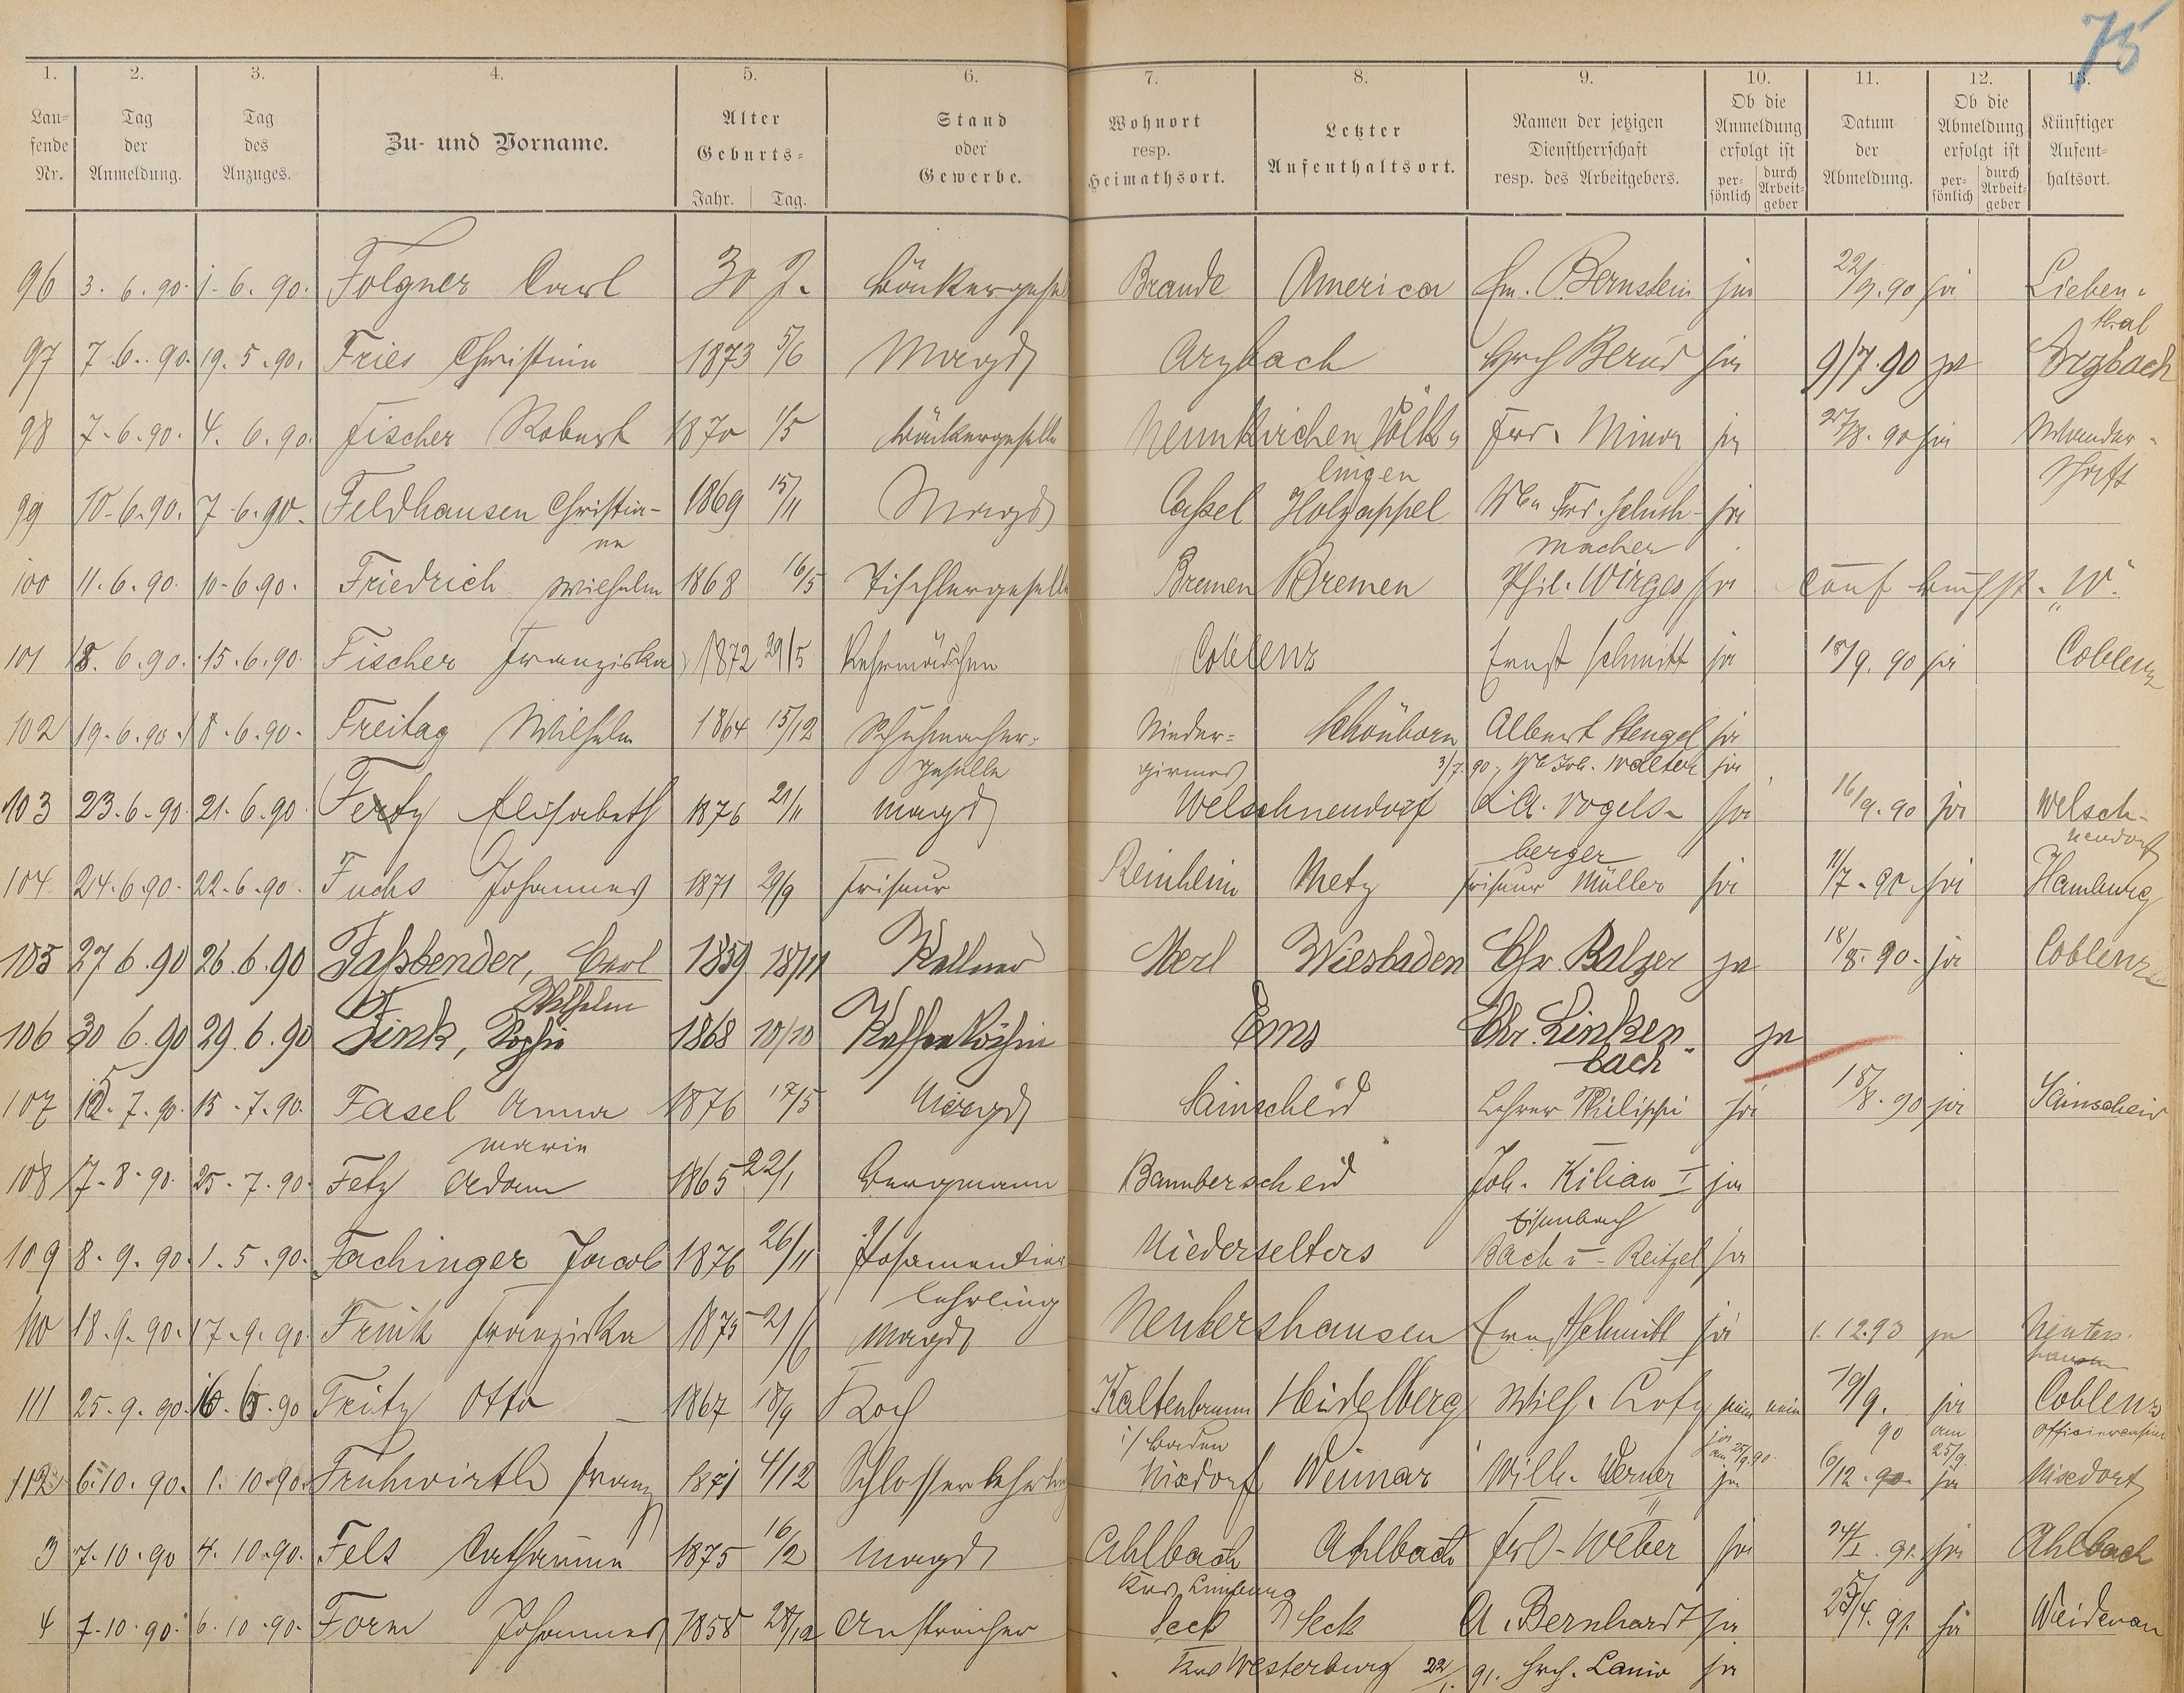 75
1. 2. 3. 4. 5. 6. 7. 8. 9. 10. 11. 12. 13.
Lau=
fende
Nr.
Tag
der
Anmeldung.
Tag
des
Anzuges.
Zu- und Vorname.
Alter
Geburts=
Jahr. Tag.
Stand
oder
Gewerbe.
Wohnort
resp.
Heimathsort.
Letzter
Aufenthaltsort.
Namen der jetzigen
Dienstherrschaft
resp. des Arbeitgebers.
Ob die
Anmeldung
erfolgt ist
per-
sönlich
durch
Arbeit-
geber
Datum
der
Abmeldung.
Ob die
Abmeldung
erfolgt ist
per-
sönlich
durch
Arbeit-
geber
Künftiger
Aufent-
haltsort.
96 3. 6. 90. 1. 6. 90. Folgner Carl 30 J. Bäckergesell Brande America Hm. Bernstein ja 22/9. 90 ja Lieben-
thal
97 7. 6. 90. 19. 5. 90. Fries Christina 1873 5/6 Magd Arzbach Hrch Bernd ja 9/7. 90 ja Arzbach
98 7. 6. 90. 4. 6. 90. Fischer Robert 1870 1/5 Bäckergeselle Neunkirchen Völk- Frd. Minor ja 27/8. 90 ja Wander-
lingen schaft
99 10. 6. 90. 7. 6. 90. Feldhausen Christia- 1869 15/11 Magd Cassel Holzappel Ww. Frd. Schuh- ja
ne macher
100 11. 6. 90. 10. 6. 90. Friedrich Wilhelm 1868 16/5 Tischlergeselle Bremen Bremen Phil. Wirges ja "W."
101 18. 6. 90. 15. 6. 90. Fischer Franziska 1872 29/5 Coblenz Ernst Schmitt ja 18/9. 90 ja Coblenz
102 19. 6. 90. 18. 6. 90. Freitag Wilhelm 1864 15/12 Schuhmacher- Nieder= Schönborn Albert Stengel ja
geselle girmes 3/7. 90. Ww Joh. Walter ja
103 23. 6. 90. 21. 6. 90. Elisabeth 1876 21/11 Magd Welschneudorf L. A. Vogels- ja 16/9. 90 ja Welsch-
berger neudorf
104 24. 6. 90. 22. 6. 90. Fuchs Johannes 1871 29/9 Friseur Reinheim Metz Friseur Müller ja 11/7. 90. ja Hamburg
105 27 6. 90 26. 6. 90 Fassbender, Carl 1859 18/11 Kellner Merl Wiesbaden Chr. Balzer ja 18/8. 90. ja Coblenz
Wilhelm
106 30 6. 90 29. 6. 90 Fink, Sophie 1868 10/10 Kaffeeköchin Ems Chr. Linken- ja
bach
107 15. 7. 90. 15. 7. 90. Fasel Anna 1876 17/5 Magd Sainscheid Lehrer Philippi ja 18/8. 90 ja Sainscheid
Maria
108 7. 8. 90. 25. 7. 90. Fetz Adam 1865 22/1 Bergmann Bannberscheid Joh. Kilian I ja
Eisenbach
109 8. 9. 90. 1. 5. 90. Fachinger Jacob 1876 26/11 Posamentier Niederselters Bach u. Reitzel ja
lehrling
110 18. 9. 90. 17. 9. 90. Frink Franziska 1875 Magd Nentershausen Ernst Schmitt ja 1. 12. 93 ja Nenters-
hausen
111 25. 9. 90. 16. 6. 90 Fritz Otto 1867 18/9 Koch Kaltenbrunn Heidelberg Wilh. nein nein 19/9. ja Coblenz
i/ Baden ja am 25/9 90. 90 am 25/9.
112 6. 10. 90. 1. 10. 90. Fruhwirth Franz 1871 4/12 Schlosserlehrling Nixdorf Weimar Wilh. Werner ja 6/12. 90. ja Nixdorf
3 7. 10. 90 4. 10. 90. Fels Catharina 1875 16/2 Magd Ahlbach Ahlbach Frd. Weber ja 24/I. 91. ja Ahlbach
Krs. Limburg
4 7. 10. 90. 6. 10. 90. Form Johannes 1858 28/12 Anstreicher Seck Seck A. Bernhardt ja 25/4. 91. ja Weidenau
Krs Westerburg 22/1. 91. Hrch. Lanio ja